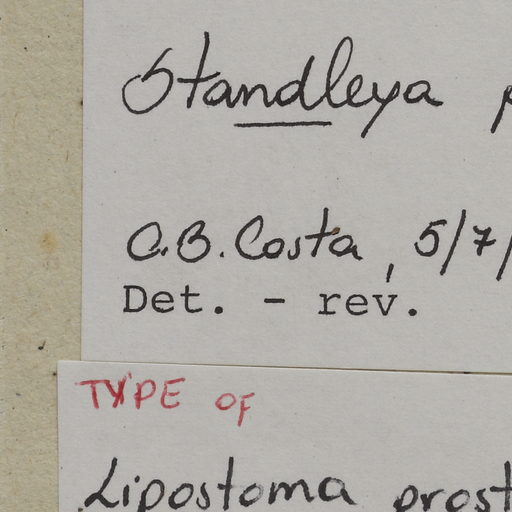 Standleya p
C.B. Costa, 5/7/
Det. - rev.
TYPE OF
Lipostoma prost